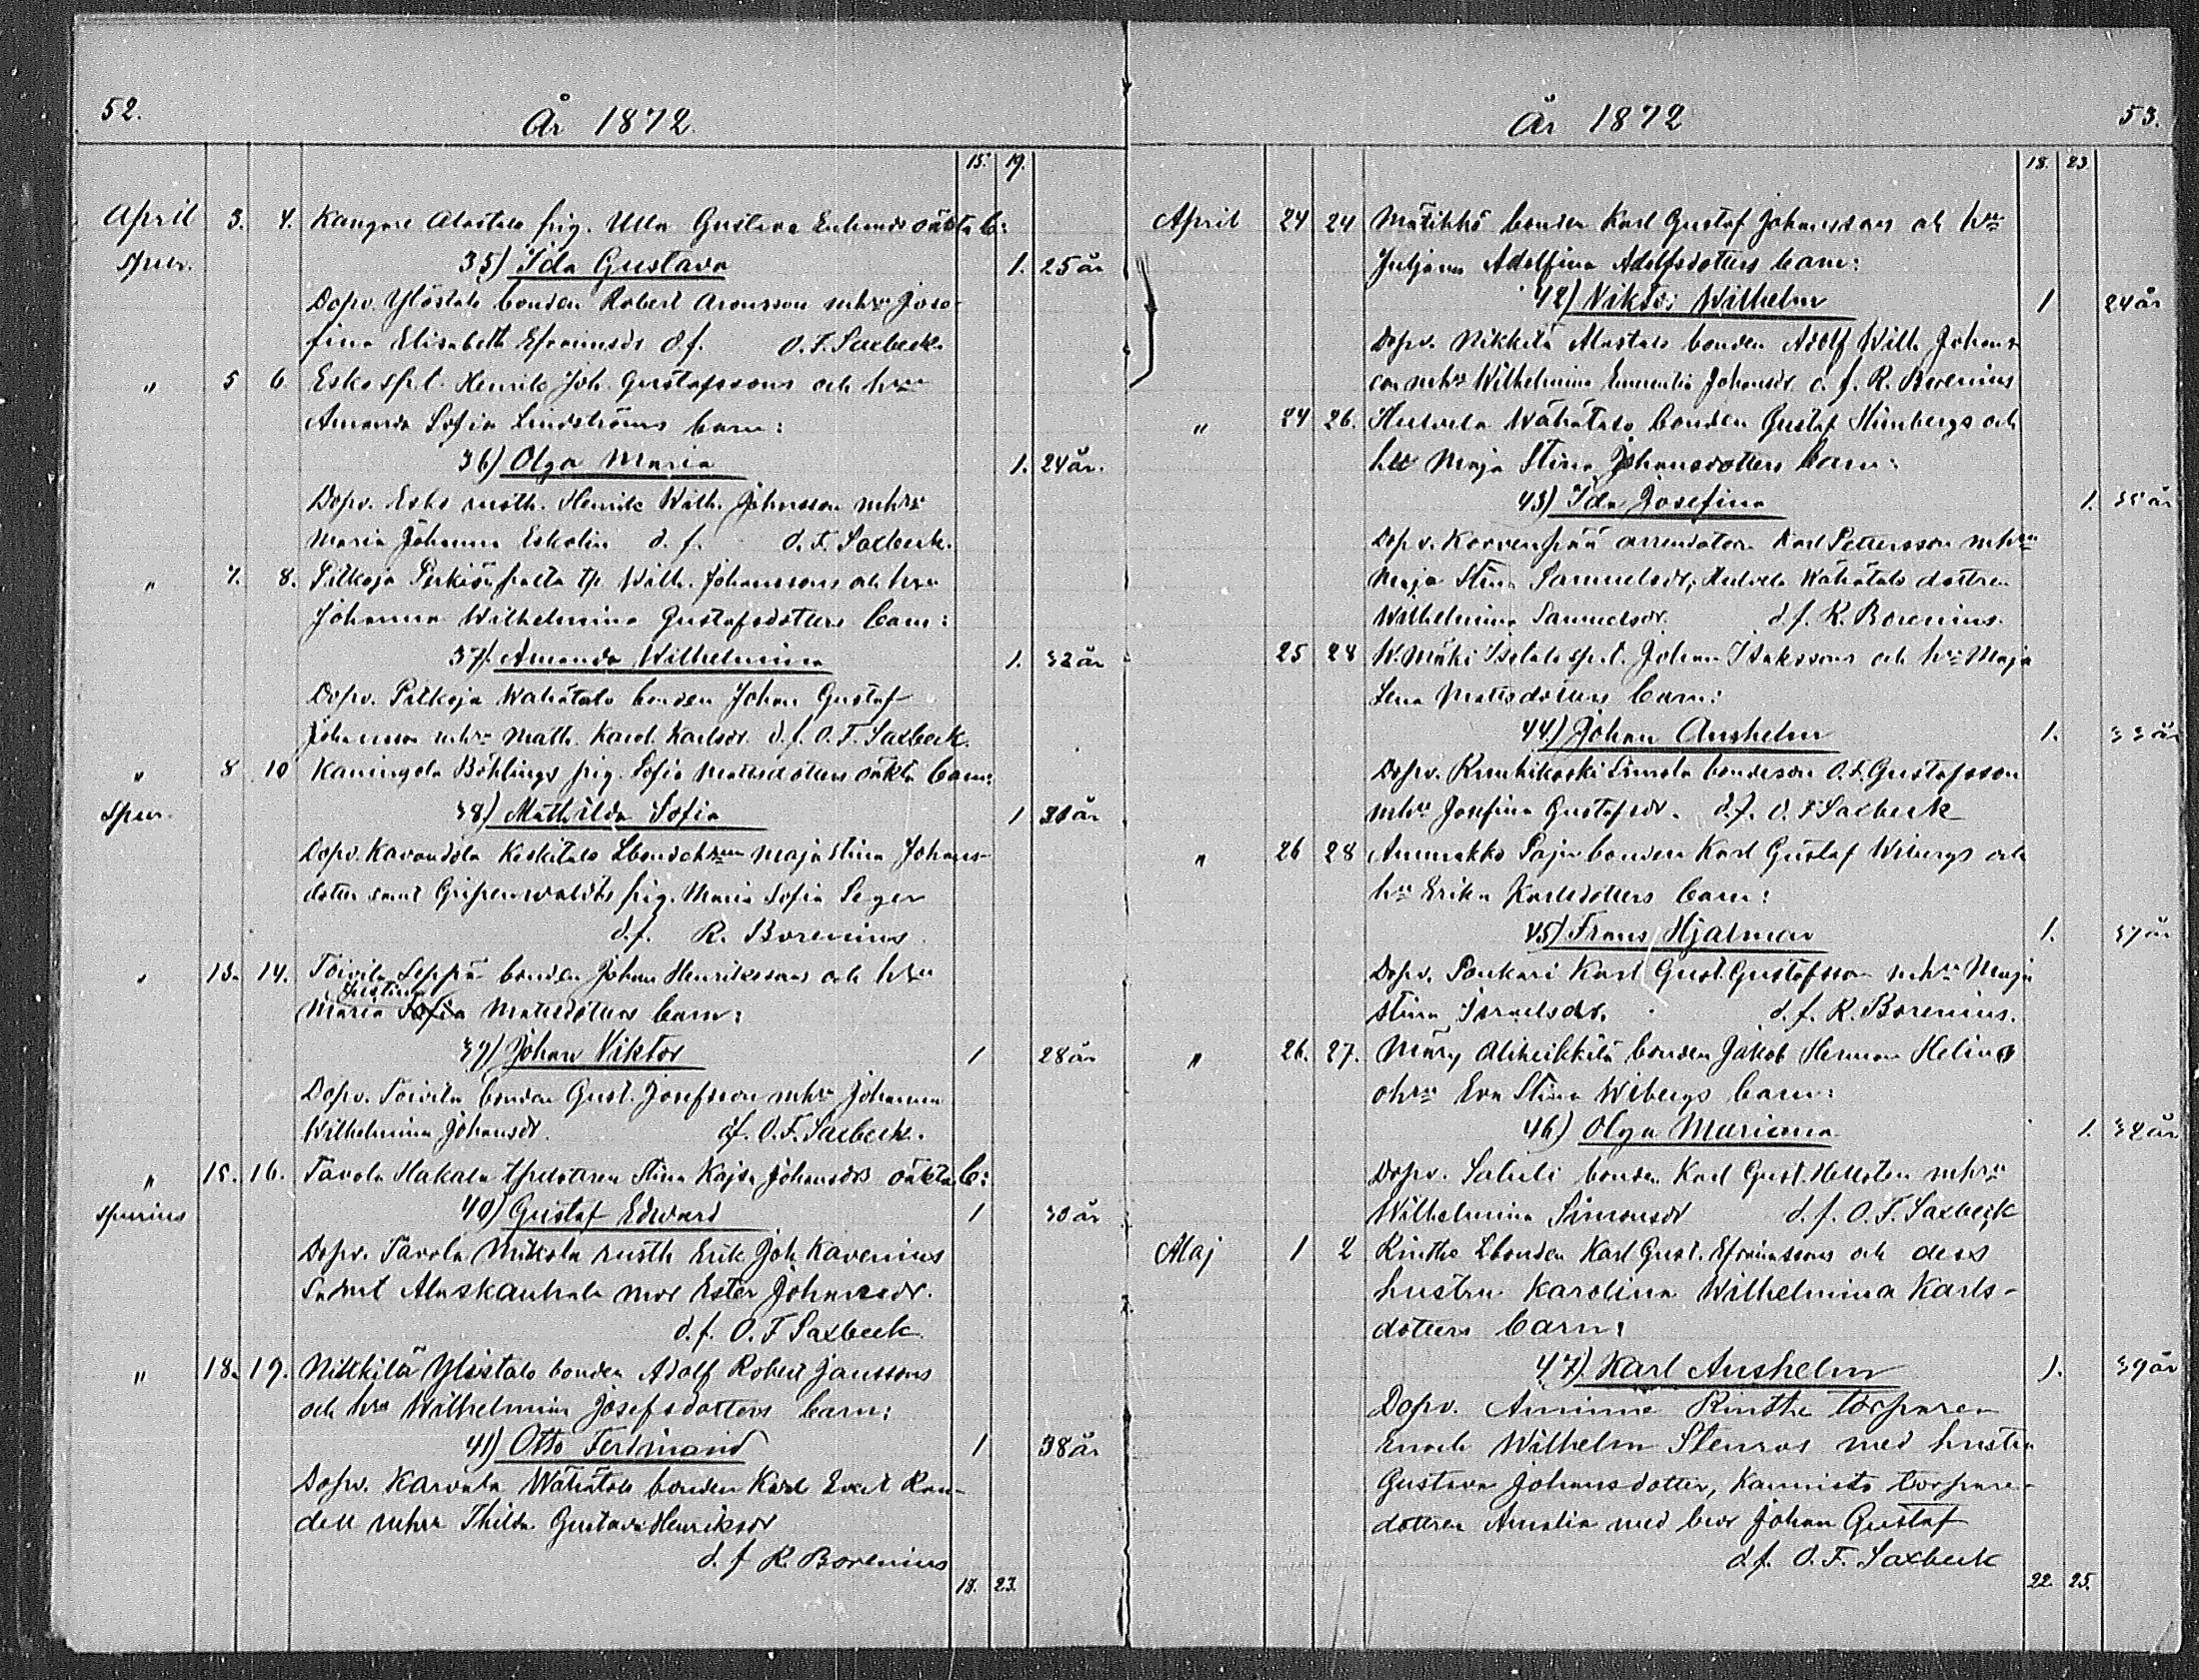 52.
År 1872
15. 19.
April 3. 4. Kangare Alastalo pig. Ulla Gustava Enlunds oäkta b:
spur. 35) Ida Gustava 1. 25 år
Dopv. Ylöstalo bonden Robert Aronsson mhru Jose-
fina Elisabeth Efraimsdr d.f. O.F. Saxbeck.
" 5 6 Esko spt. Henrik Joh. Gustafssons och hru
Amanda Sofia Lindströms barn:
36) Olga Maria 1. 24 år.
Dopv. Esko rusth. Henrik Wilh. Johansson mhru
Maria Johanna Eskolin d.f. O.F. Saxbeck.
" 7. 8. Pitkoja tp. Wilh. Johanssons och hru
Johanna Wilhelmina Gustafsdotters barn:
37) Amanda Wilhelmina 1. 32 år
Dopv. Pitkoja Wähätalo bonden Johan Gustaf
Johansson mhru Math. Karol. Karlsdr. d.f. O.F. Saxbeck.
" 8 10 Böhlings pig. Sofia Mattsdotters oäkta barn:
Spur. 38) Mathilda Sofia 1 31 år
Dopv. Keskitalo Maja Stina Johans-
dotter samt pig. Maria Sofia Seger
d.f. R. Borenius.
" 13. 14. Toivila Seppä bonden Johan Henrikssons och hru
Justina
Maria Sofia Mattsdotters barn:
39) Johan Viktor 1 28 år
Dopv. Toivila bonden Gust. Josefsson mhru Johanna
Wilhelmina Johansdr. d.f. O.F. Saxbeck.
" 15. 16. Tavola Hakala Stina Kajsa Johansdrs oäkta b:
spurius 40) Gustaf Edward 1 30 år
Dopv. Tavola Mikola rusth Erik Joh. Kavenius
samt mor Ester Johansdr.
d.f. O.F. Saxbeck
" 18. 19. Nikkilä Ylistalo bonden Adolf Robert Janssons
och hru Wilhelmina Josefsdotters barn:
41) Otto Ferdinand 1 38 år
Dopv. Karvala Wähätalo bonden Karl Evert Ran-
dell mhru Thilda Gustava Henriksdr
d.f R. Borenius
18. 23.
År 1872
53.
18. 23
April 24 24 Mätikkö bonden Karl Gustaf Johanssons och hru
Juljana Adolfina Adolfsdotters barn:
42) Viktor Wilhelm 1 24 år
Dopv. Nikkilä Alastalo bonden Adolf Wilh. Johans-
son mhru Wilhelmina Johansdr. d.f. R. Borenius
" 24 26. Hulvela Wähätalo bonden Gustaf Himbergs och
hu Maja Stina Johansdotters barn:
43) Ida Josefina 1. 35 år
Dopv. Korvenpää arrendator Karl Pettersson mhru
Maja Stina Samuelsdr, Hulvela Wähätalo dottren
Wilhelmina Samuelsdr. d.f. R. Borenius.
25 28 W. Mäki Isotalo spt. Johan Isakssons och hru Maja
Lena Mattsdotters barn:
44.) Johan Anshelm 1. 33 år
Dopv. Simola bondeson O.F. Gustafsson
mhru Josefina Gustafsdr. d.f. O.F Saxbeck
" 26 28 Ammakko Paju bonden Karl Gustaf Wibergs och
hru Erika Karlsdotters barn:
45) Frans Hjalmar 1. 37 år
Dopv. Pankari Karl Gust. Gustafsson mhru Maja
Stina Israelsdr. d.f. R. Borenius.
" 26. 27. Märy Aliheikkilä bonden Jakob Herman Helins
ohru Eva Stina Wibergs barn:
46) Olga Mariana 1. 32 år
Dopv. Saluli bonden Karl Gust. Hellsten mhru
Wilhelmina Simonsdr d.f. O.F. Saxbeck
Maj 1 2 Rinthe Lbonden Karl Gust. Efraimssons och dess
hustru Karolina Wilhelmina Karls-
dotters barn:
47). Karl Anshelm 1. 39 år
Dopv. Aminne Rinthe torparen
Enoch Wilhelm Stenros med hustru
Gustava Johansdotter, Kannisto torpare-
dottren Amalia med bror Johan Gustaf
d.f. O.F. Saxbeck
22. 25.